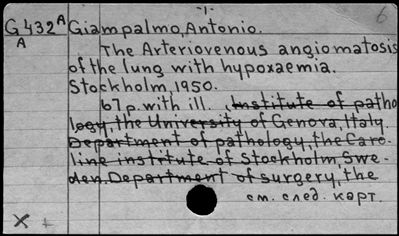 -1-
6
G432A Giampalmo, Antonio.
A
The Arteriovenous angiomatosis
of the lung with hypoxaemia.
Stockholm, 1950.
67 p. with ill. , Institute of patho
logy, the University of Genova, Italy.
Department of pathology, the Caro-
line institute of Stockholm, Swe-
den. Department of surgery, the
см. след. карт.
X +